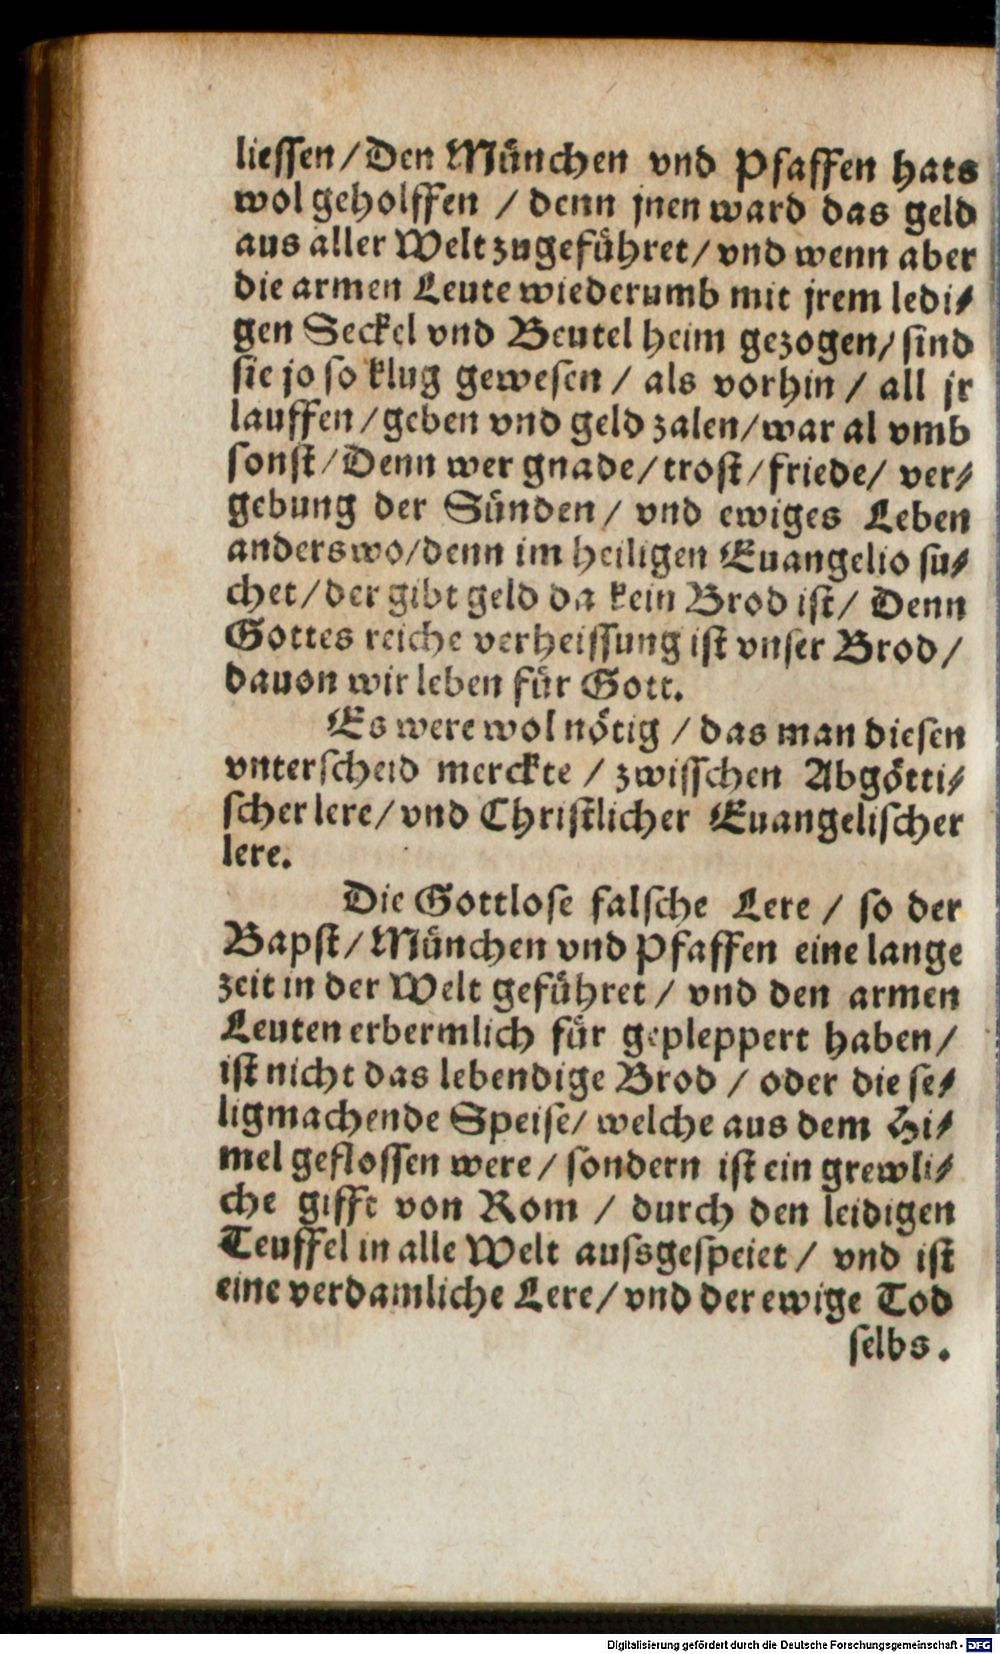 lieſſen / Den Muͤnchen vnd Pfaffen hats
wol geholffen / denn jnen ward das geld
aus aller Welt zugefuͤhret / vnd wenn aber
die armen Leute wiederumb mit jrem ledi⸗
gen Seckel vnd Beutel heim gezogen / ſind
ſie jo ſo klug geweſen / als vorhin / all jr
lauffen / geben vnd geld zalen / war al vmb
ſonſt / Denn wer gnade / troſt / friede / ver⸗
gebung der Suͤnden / vnd ewiges Leben
anderswo / denn im heiligen Euangelio ſu⸗
chet / der gibt geld da kein Brod iſt / Denn
Gottes reiche verheiſſung iſt vnſer Brod /
dauon wir leben fuͤr Gott.
Es were wol noͤtig / das man dieſen
vnterſcheid merckte / zwiſſchen Abgoͤtti⸗
ſcher lere / vnd Chriſtlicher Euangeliſcher
lere.
Die Gottloſe falſche Lere / ſo der
Bapſt / Muͤnchen vnd Pfaffen eine lange
zeit in der Welt gefuͤhret / vnd den armen
Leuten erbermlich fuͤr gepleppert haben /
iſt nicht das lebendige Brod / oder die ſe⸗
ligmachende Speiſe / welche aus dem Hi⸗
mel gefloſſen were / ſondern iſt ein grewli⸗
che gifft von Rom / durch den leidigen
Teuffel in alle Welt auſsgeſpeiet / vnd iſt
eine verdamliche Lere / vnd der ewige Tod
ſelbs.
Digitalisierung gefördert durch die Deutsche Forschungsgemeinschaft - DFG